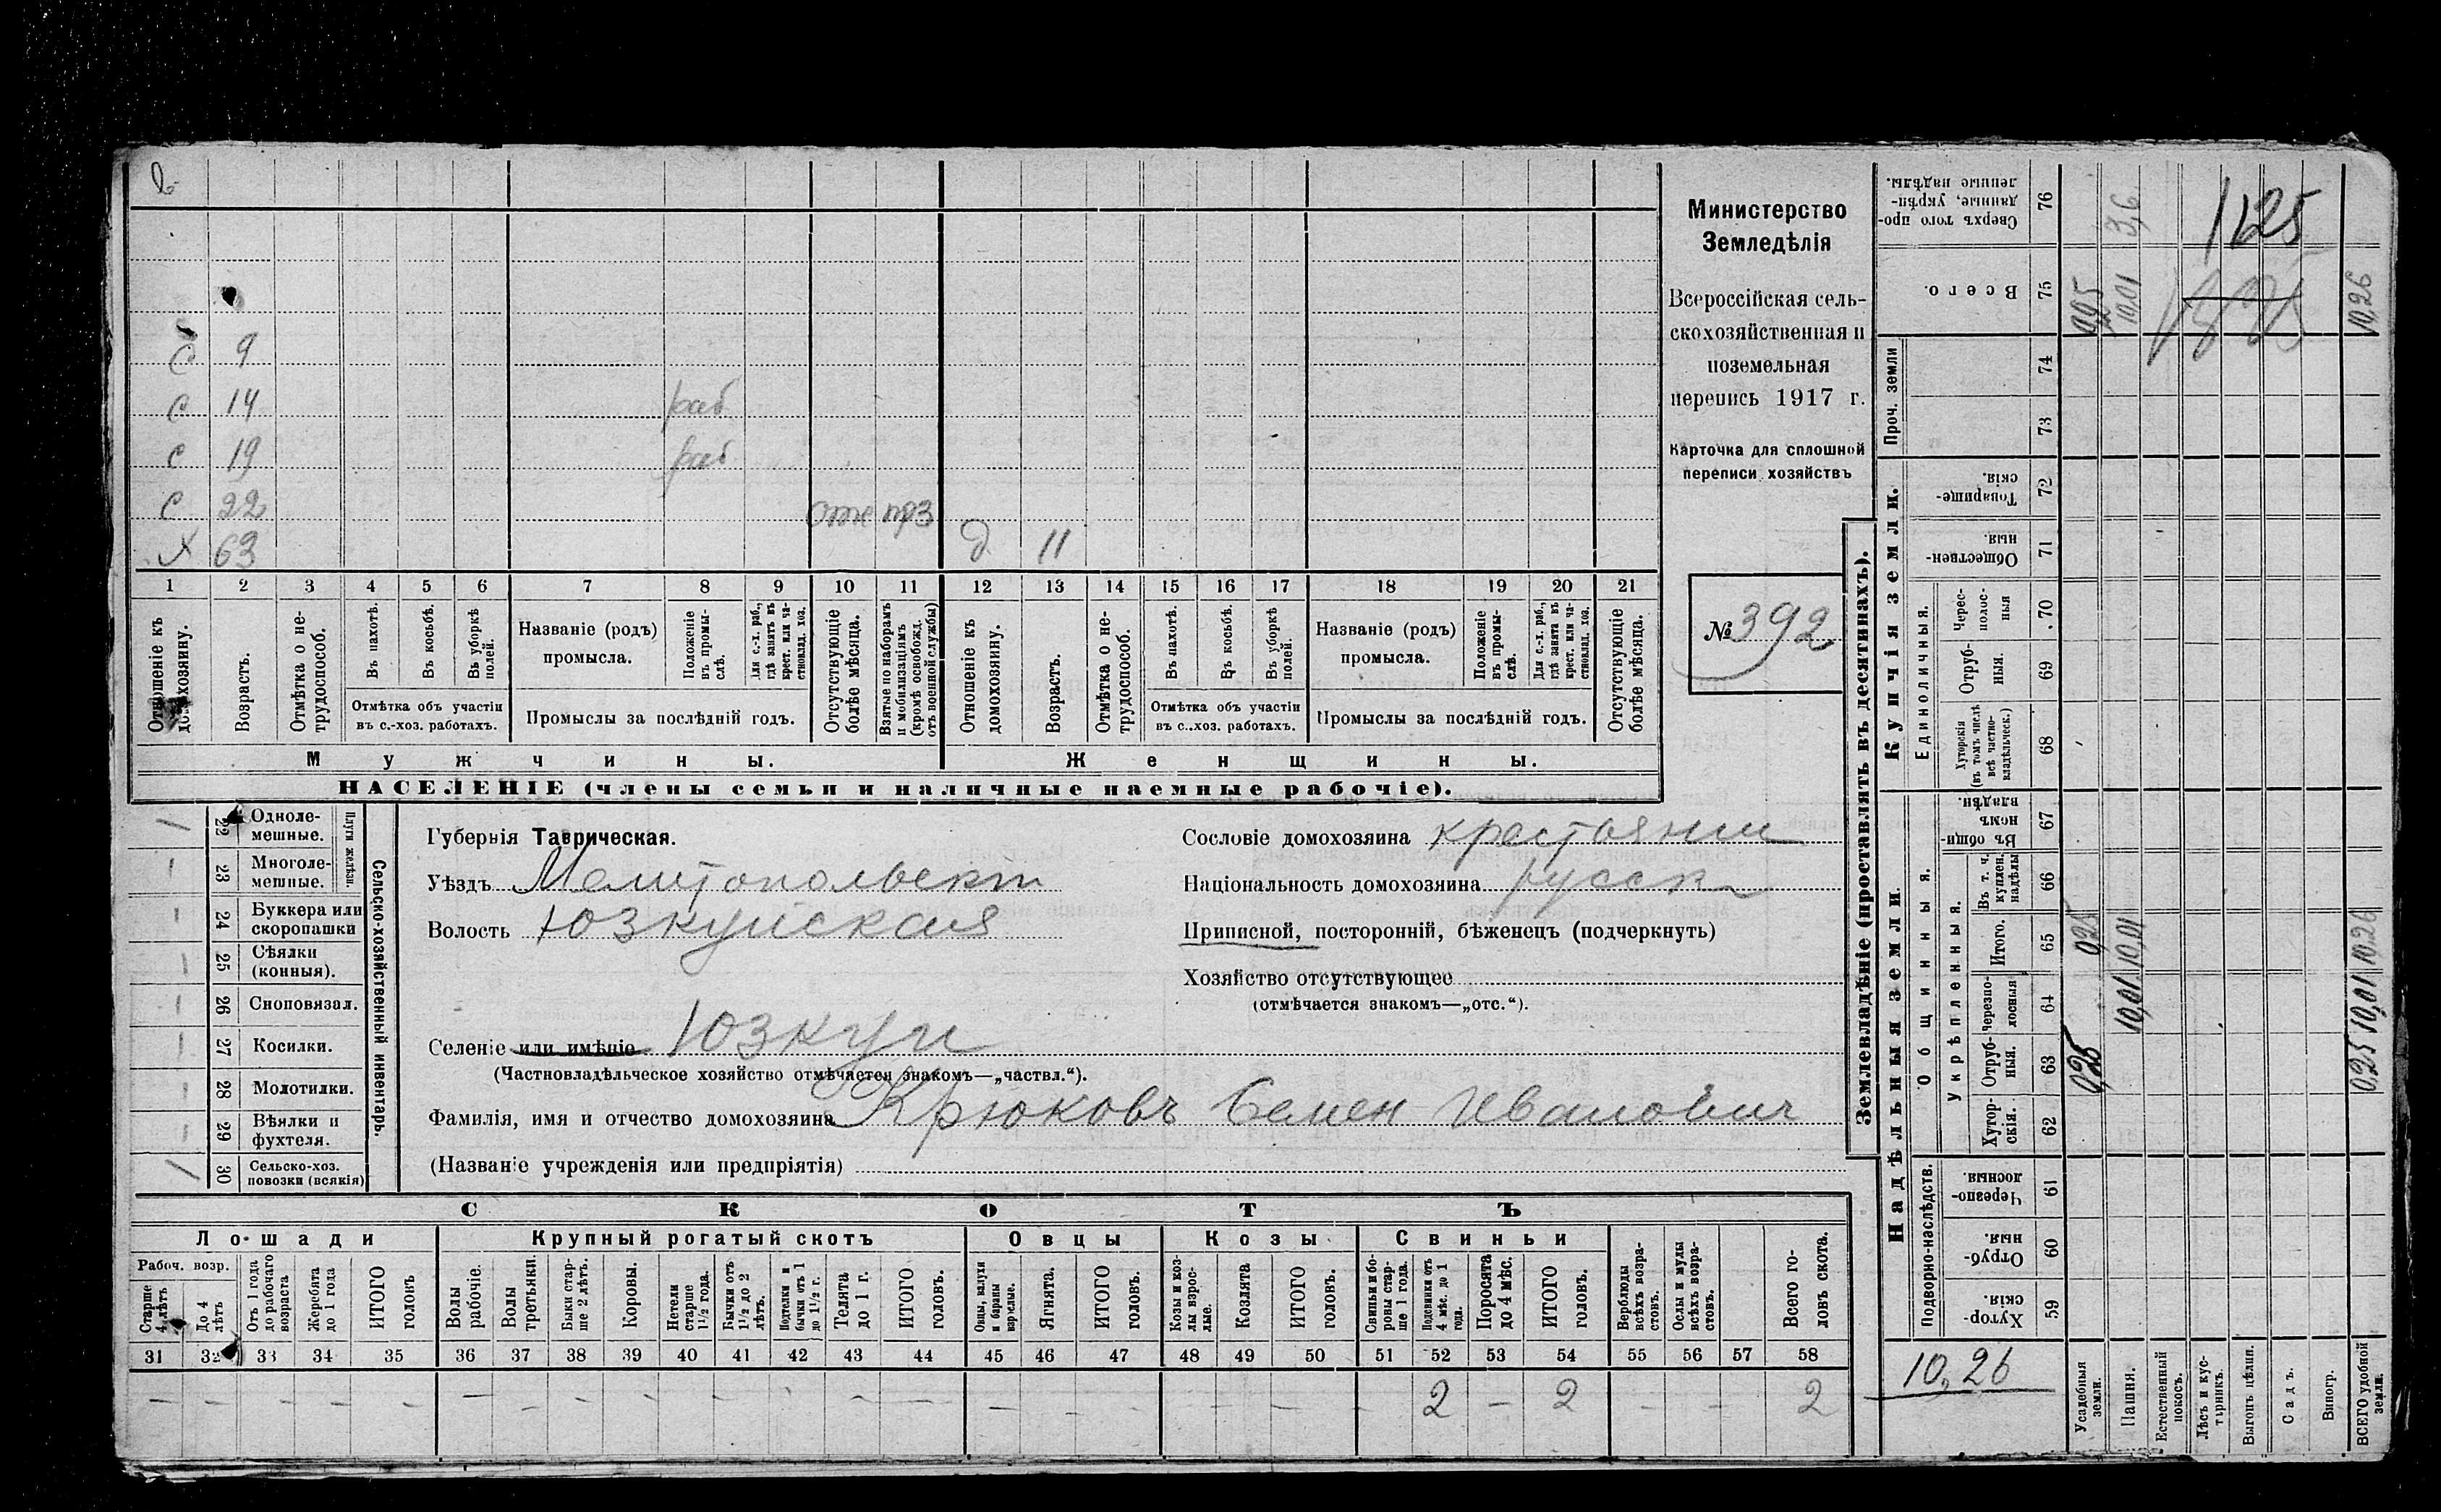 С 9
С 14 раб
С 19 раб
С 22 отс
Х 63 д 11
1 2 3 4 5 6 7 8 9 10 11 12 13 14 15 16 17 18 19 20 21
Отношеніе къ домохозяину.
Возрастъ.
Отмѣтка о не-
трудоспособ.
Въ пахотѣ.
Въ косьбѣ.
Въ уборкѣ полей.
Отмѣтка объ участіи
въ с.-хоз. работахъ.
Названіе (родъ)
промысла.
Положеніе въ промы-
слѣ.
Для с.-х. раб., гдѣ занятъ въ крест. или ча-
стновлад. хоз.
Промыслы за послѣдній годъ.
Отсутствующіе болѣе мѣсяца.
Взятые по наборамъ и мобилизаціямъ (кромѣ освобожд. отъ военной службы)
Отношеніе къ домохозяину.
Возрастъ.
Отмѣтка о не-
трудоспособ.
Въ пахотѣ.
Въ косьбѣ.
Въ уборкѣ полей.
Отмѣтка объ участіи
въ с..хоз. работахъ.
Названіе (родъ)
промысла.
Положеніе въ промы-
слѣ.
Для с.-х. раб., гдѣ занята въ крест. или ча-
стновлад. хоз.
Промыслы за послѣдній годъ.
Отсутствующіе болѣе мѣсяца.
Мужчины. Женщины.
НАСЕЛЕНІЕ (члены семьи и наличные наемные рабочіе).
Министерство
Земледѣлія
Всероссійская сель-
скохозяйственная и
поземельная
перепись 1917 г.
Карточка для сплошной
переписи хозяйствъ
№ 392
22 Одноле-
мешные.
23 Многоле-
мешные.
Плуги желѣзн.
24 Буккера или
скоропашки
25 Сѣялки
(конныя).
26 Сноповязал.
27 Косилки.
28 Молотилки.
29 Вѣялки и
фухтеля.
30 Сельско-хоз.
повозки (всякія)
Сельско-хозяйственный инвентарь.
Губернія Таврическая.
Уѣздъ Мелитопольскій
Волость Юзкуйская
Селеніе или имѣніе Юзкуи
(Частновладѣльческое хозяйство отмѣчается знакомъ—„частвл.“).
Фамилія, имя и отчество домохозяина Крюковъ Семен Иванович
(Названіе учрежденія или предпріятія)
Сословіе домохозяина крестьянин
Національность домохозяина русск
Приписной, посторонній, бѣженецъ (подчеркнуть)
Хозяйство отсутствующее
(отмѣчается знакомъ—„отс.“).
СКОТЪ
Лошади Крупный рогатый скотъ Овцы Козы Свиньи
Рабоч. возр.
Старше 4 лѣтъ
До 4 лѣтъ
Отъ 1 года до рабочаго возраста
Жеребята до 1 года
ИТОГО головъ
Волы рабочіе.
Волы третьяки.
Быки стар-
ше 2 лѣтъ.
Коровы.
Нетели старше 1½ года.
Бычки отъ 1½ до 2 лѣтъ.
Подтелки и бычки отъ 1 до 1½ г.
Телята до 1 г.
ИТОГО головъ.
Овцы, валухи и бараны взрослые.
Ягнята.
ИТОГО головъ.
Козы и коз-
лы взрос-
лые.
Козлята
ИТОГО головъ.
Свиньи и бо-
ровы стар-
ше 1 года.
Подсвинки отъ 4 мѣс. до 1 года.
Поросята до 4 мѣс.
ИТОГО головъ.
Верблюды всѣхъ возра-
стовъ.
Ослы и мулы всѣхъ возра-
стовъ.
Всего го-
ловъ скота.
31 32 33 34 35 36 37 38 39 40 41 42 43 44 45 46 47 48 49 50 51 52 53 54 55 56 57 58
— — — — — — — — — — — — — — — — — — — — — 2 — 2 — — 2
Землевладѣніе (проставлять въ десятинахъ).
Сверхъ того про-
данные, укрѣп-
ленные надѣлы. 76 3,6 1125
Всего. 75 0,25 10,01 10,26
Проч. земли 74 73
Купчія земли.
Товарище-
скія. 72
Обществен-
ныя. 71
Единоличныя.
Черес-
полос-
ныя 70
Отруб-
ныя. 69
Хуторскія (въ томъ числѣ всѣ частно-
владѣльческ.) 68
Надѣльныя земли
Общинныя.
Въ общин-
номъ владѣн. 67
Укрѣпленныя.
Въ т. ч. куплен. надѣлы 66
Итого. 65 0,25 10,01 10,26
Черезпо-
лосныя 64 10,01 10,01
Отруб-
ныя. 63 0,25 0,25
Хутор-
скія. 62
Подворно-наслѣдств.
Черезпо-
лосныя 61
Отруб-
ныя. 60
Хутор-
скія. 59
10,26
Усадебныя земли.
Пашня.
Естественный покосъ.
Лѣсъ и кус-
тарникъ.
Выгонъ цѣлин.
Садъ.
Виногр.
ВСЕГО удобной земли.